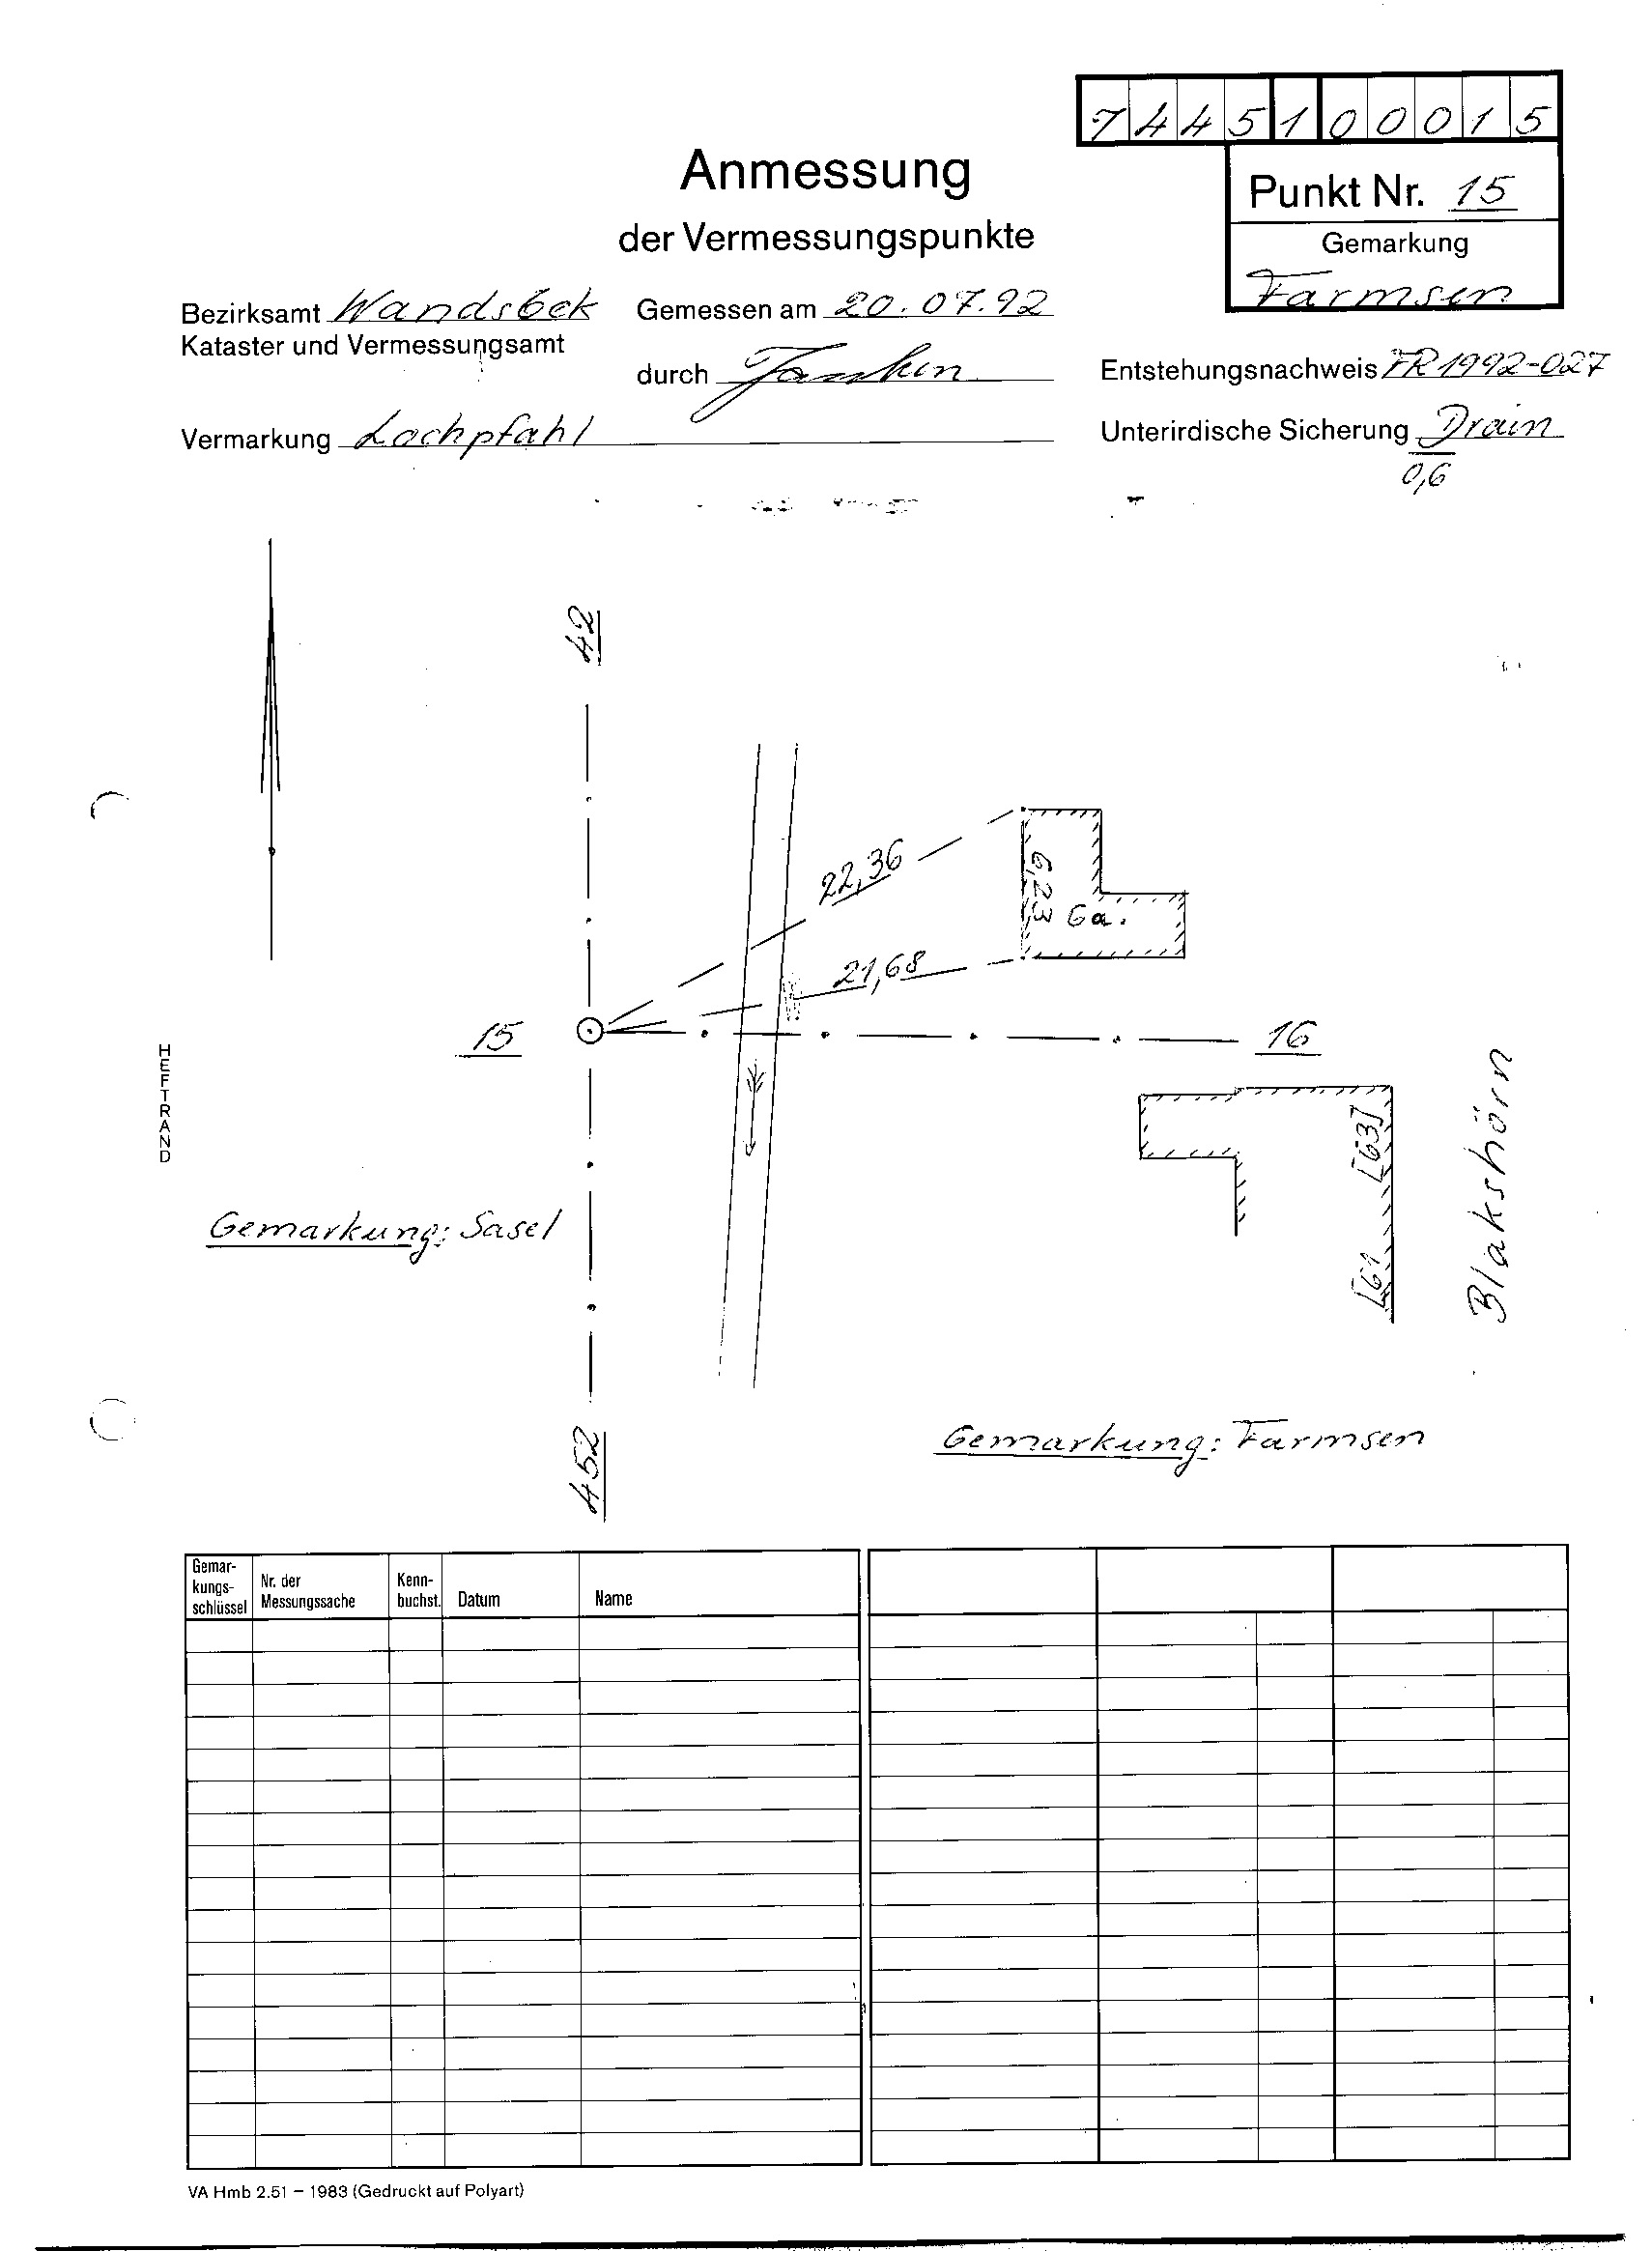 7445100015
Anmessung
der Vermessungspunkte
Punkt Nr. 15
Gemarkung
Farmsen
Bezirksamt Wandsbek
Kataster und Vermessungsamt
Gemessen am 20.07.92
durch
Entstehungsnachweis FR1992-027
Vermarkung Lochpfahl
Unterirdische Sicherung Drain
0,6
42
22,36
6,23
Ga.
21,68
15
16
HEFTRAND
[63]
[61
Blakshörn
Gemarkung: Sasel
Gemarkung: Farmsen
452
Gemar-
kungs-
schlüssel
Nr. der
Messungssache
Kenn-
buchst.
Datum
Name
VA Hmb 2.51 – 1983 (Gedruckt auf Polyart)